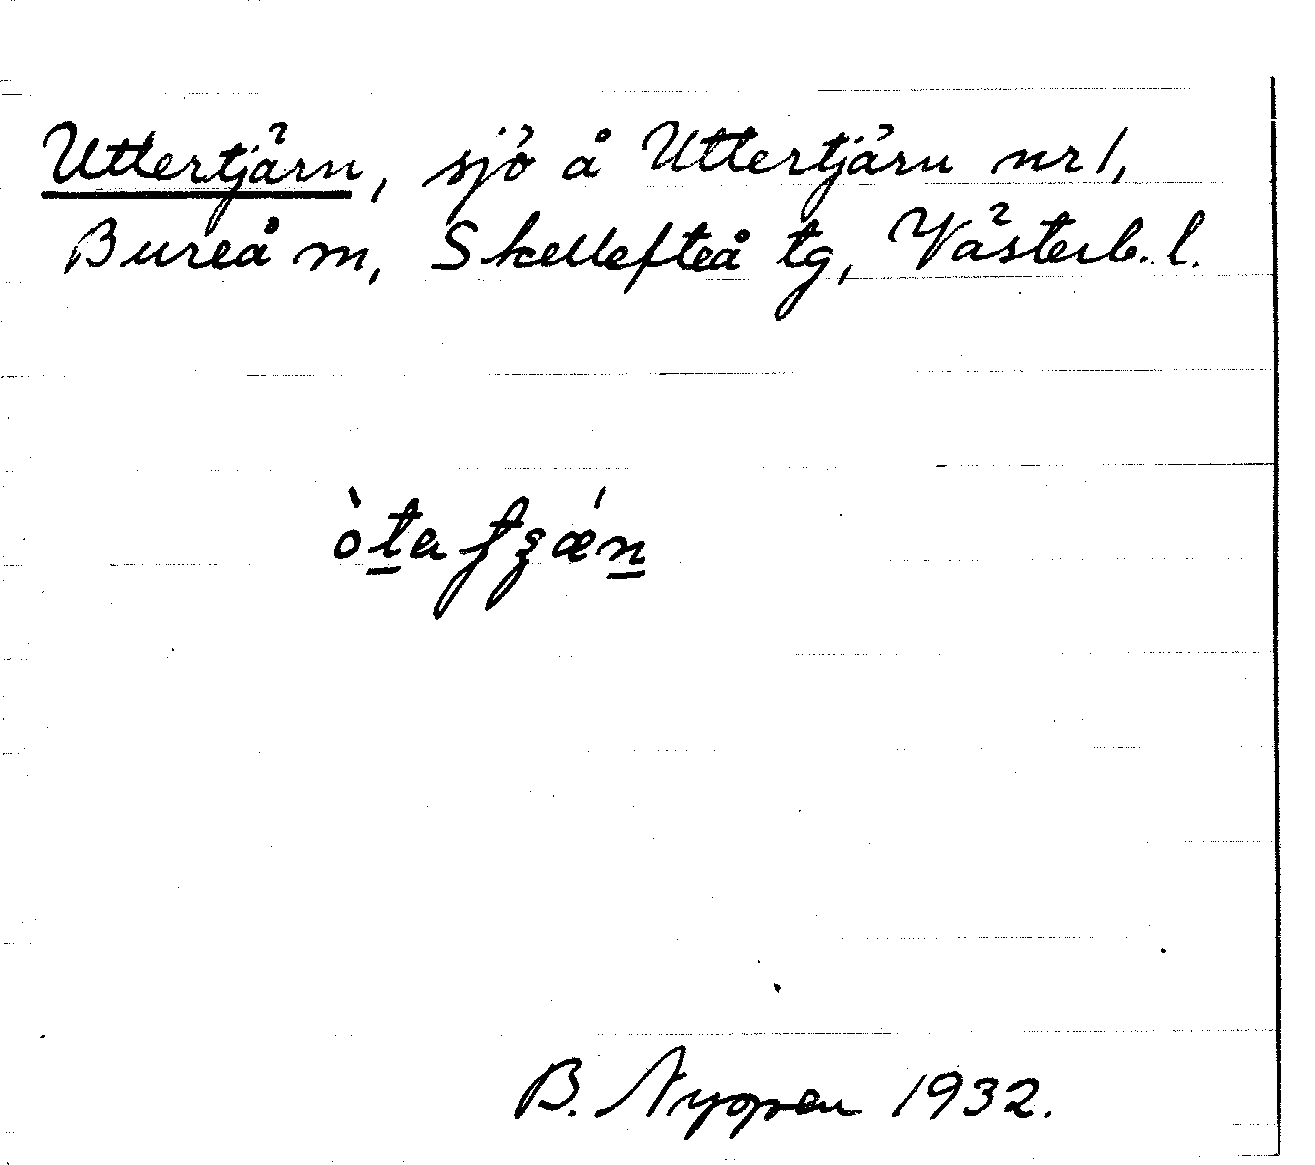 Uttertjärn, sjö å Uttertjärn nr 1,
Bureå m, Skellefteå tg, Västerb. l.
B. Nyopen 1932.